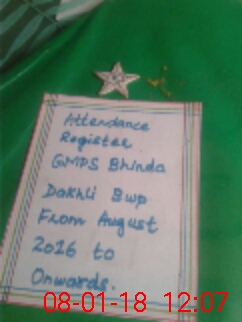 Attendance
Register
GMPS Bhinda
Dakhli Bwp
From August
2016 to
Onwards.
08-01-18 12:07